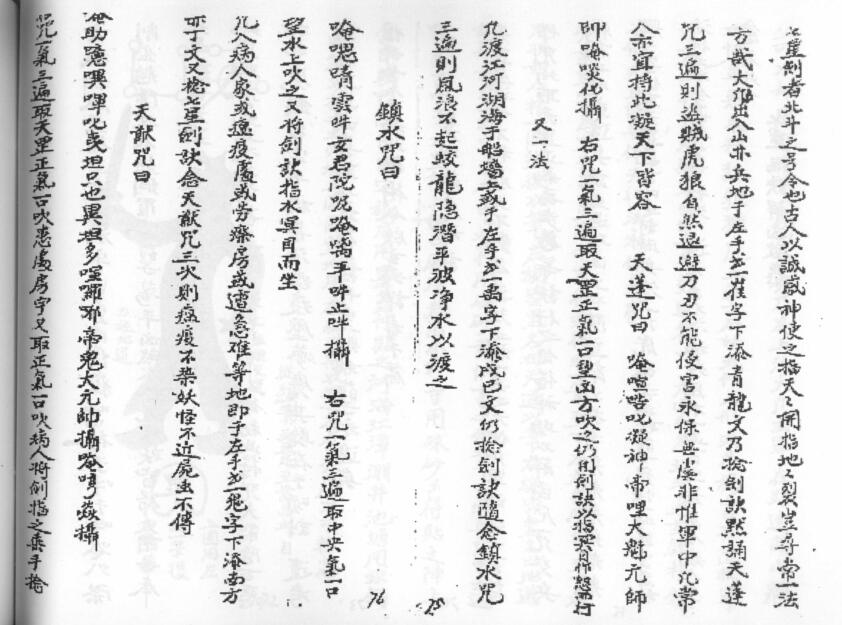 七星劍者北斗之号令也古人以誠感神使之指天天開指地地裂豈尋常一法
方哉大凡出入山井兵地于左手書一崔字下添青龍文乃捻劍訣默誦天蓬
咒三遍則盜賊虎狼自然退避刀刃不能侵害永保無虞非惟軍中凡常
人亦宜持此凝天下皆容 天蓬咒曰 唵 叱凝神帝哩大 元帥
帥唵 化攝 右咒一氣三遍取天罡正氣一口望 方吹之仍用劍訣以指
又一法
凡渡江河湖海于船 上或于左手書一禹字下添戊巳文仍捻劍訣隨念鎮水咒
三遍則風浪不起蛟龍隐潛平波净水以渡之
25
76
鎮水咒曰
唵 晴雲吽女君院 唵 平吽止吽攝 右咒一氣三遍取中央氣一口
望水上吹之又將劍訣指水冥目而坐
凡入病人家或瘟疫處或劳瘵房或遭急难等地即于左手書一鬼字下添南方
丙丁文又捻七星劍訣念天猷咒三次則瘟疫不染妖怪不近屍虫不傳
天猷咒曰
唵助 嘿 叱 坦只也異坦多哩囉邪帝鬼大元帥攝唵 攝
咒一氣三遍取天罡正氣一口吹患處房宇又取正氣一口吹病人將劍指之乘手捻